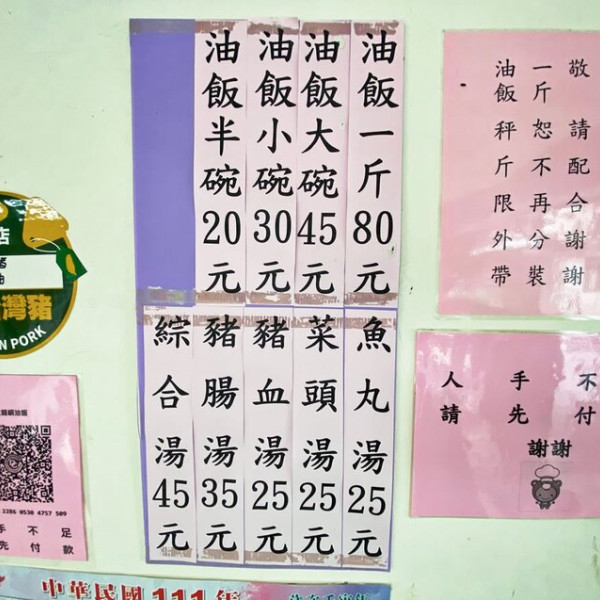 油飯一斤80元
油飯大碗45元
油飯小碗30元
油飯半碗20元
魚丸湯25元
菜頭湯25元
豬血湯25元
豬腸湯35元
綜合湯45元
敬請配合謝謝
一斤恕不再分裝
油飯秤斤限外帶
人手不
請先付
謝謝
店
灣豬
N PORK
3286 0530 4757 509
手不足
先付款
中華民國111年